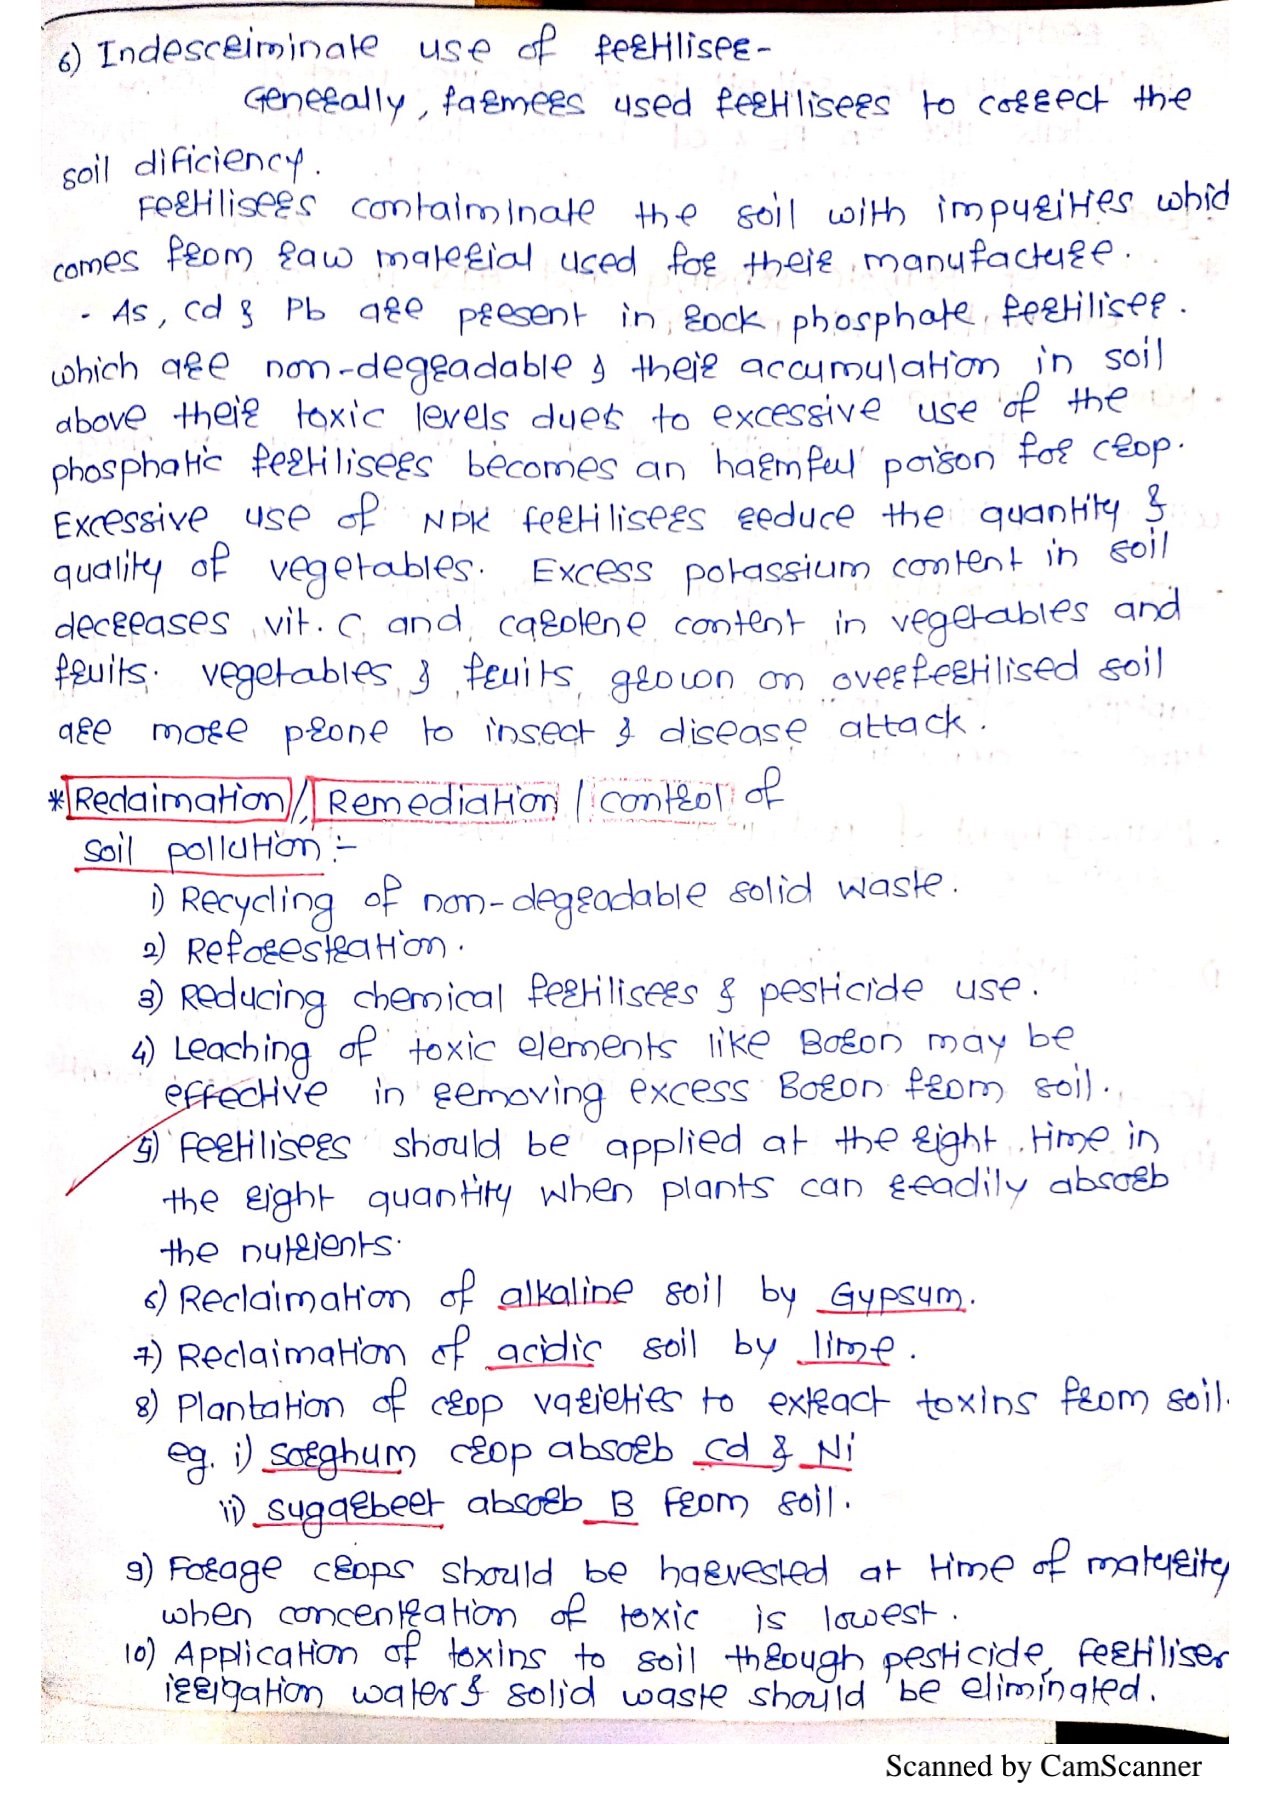 6) Indescriminate use of fertiliser-
Generally, farmers used fertilisers to correct the
soil dificiency.
Fertilisers contaiminate the soil with impurities whic
comes from raw material used for their manufacture.
- As, Cd & Pb are present in rock phosphate fertiliser.
which are non-degradable & their accumulation in soil
above their toxic levels dues to excessive use of the
phosphatic fertilisers becomes an harmful poison for crop.
Excessive use of NPK fertilisers reduce the quantity &
quality of vegetables. Excess potassium content in soil
decreases vit. C and carotene content in vegetables and
fruits. vegetables & fruits grown on overfertilised soil
are more prone to insect & disease attack.
* Reclaimation // Remediation / control of
soil pollution :-
1) Recycling of non-degradable solid waste.
2) Reforestration.
3) Reducing chemical fertilisers & pesticide use.
4) Leaching of toxic elements like Boron may be
effective in removing excess Boron from soil.
5) Fertilisers should be applied at the right time in
the right quantity when plants can readily absorb
the nutrients.
6) Reclaimation of alkaline soil by Gypsum.
7) Reclaimation of acidic soil by lime.
8) Plantation of crop varieties to extract toxins from soil.
eg. i) sorghum crop absorb Cd & Ni
ii) sugarbeet absorb B from soil.
9) Forage crops should be harvested at time of maturity
when concentration of toxic is lowest.
10) Application of toxins to soil through pesticide, fertiliser
irrigation water & solid waste should be eliminated.
Scanned by CamScanner